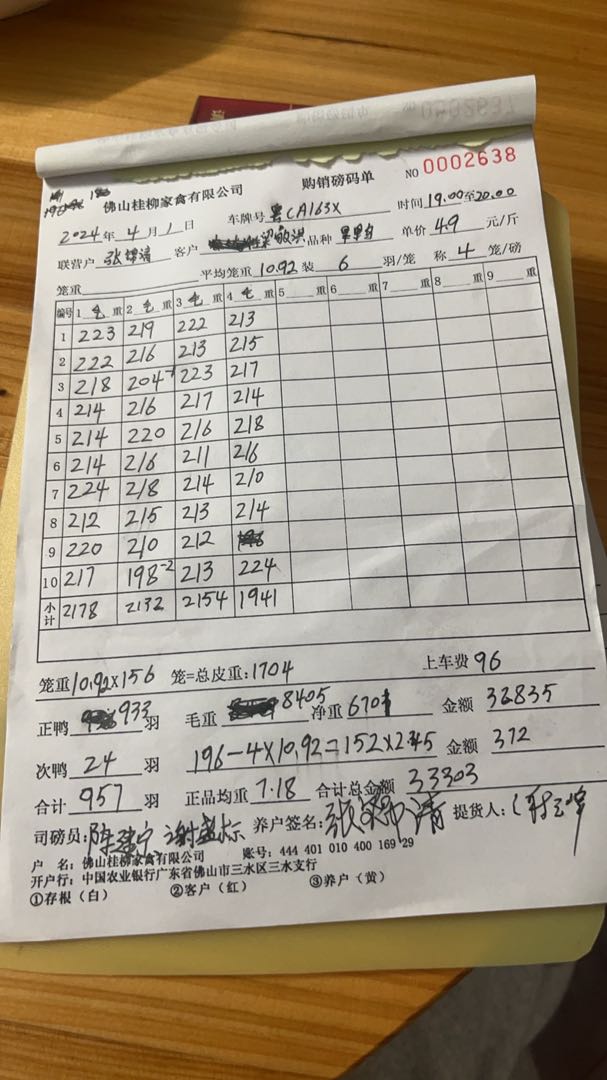 NO 0002638
佛山桂柳家禽有限公司 购销磅码单
2024年4月1日 车牌号 粤CA163X 时间 19.00至20.00
联营户 客户 梁敬洪 品种 单价 4.9 元/斤
笼重 平均笼重 10.92 装 6 羽/笼 称 4 笼/磅
编号 1 毛 重 2 毛 重 3 毛 重 4 毛 重 5 重 6 重 7 重 8 重 9 重
1 223 219 222 213
2 222 216 213 215
3 218 204-1 223 217
4 214 216 217 214
5 214 220 216 218
6 214 216 211 216
7 224 218 214 210
8 212 215 213 214
9 220 210 212
10 217 198-2 213 224
小计 2178 2132 2154 1941
笼重 10.92×156 笼=总皮重:1704 上车费 96
正鸭 933 羽 毛重 8405 净重 6701 金额 32835
次鸭 24 羽 196-4×10.92=152×2.45 金额 372
合计 957 羽 正品均重 7.18 合计总金额 33303
司磅员: 陈建宁 谢盛标 养户签名: 提货人:
户 名: 佛山桂柳家禽有限公司 账号: 444 401 010 400 169 29
开户行: 中国农业银行广东省佛山市三水区三水支行
①存根(白) ②客户(红) ③养户(黄)